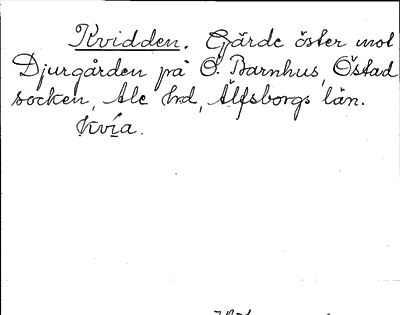 Kvidden. Gärde öster mot
Djurgården på Ö. Barnhus, Östad
socken, Ale hd, Älfsborgs län.
Kvía.